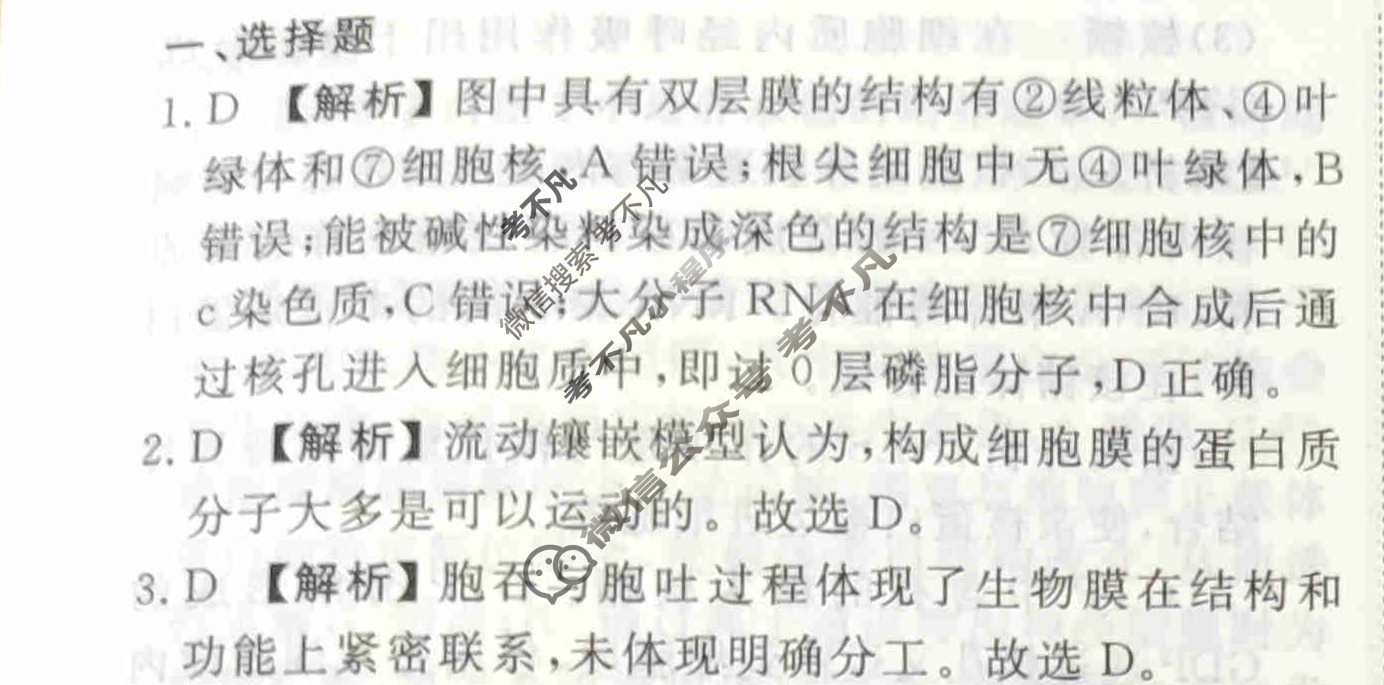 一、选择题
1. D 【解析】图中具有双层膜的结构有②线粒体、④叶
绿体和⑦细胞核,A 错误;根尖细胞中无④叶绿体,B
错误;能被碱性染料染成深色的结构是⑦细胞核中的
c染色质,C错误;大分子 RNA 在细胞核中合成后通
过核孔进入细胞质中,即过 0 层磷脂分子,D正确。
2. D 【解析】流动镶嵌模型认为,构成细胞膜的蛋白质
分子大多是可以运动的。故选 D。
3. D 【解析】胞吞与胞吐过程体现了生物膜在结构和
功能上紧密联系,未体现明确分工。故选 D。
考不凡
微信搜索 考不凡
考不凡小程序
微信公众号 考不凡